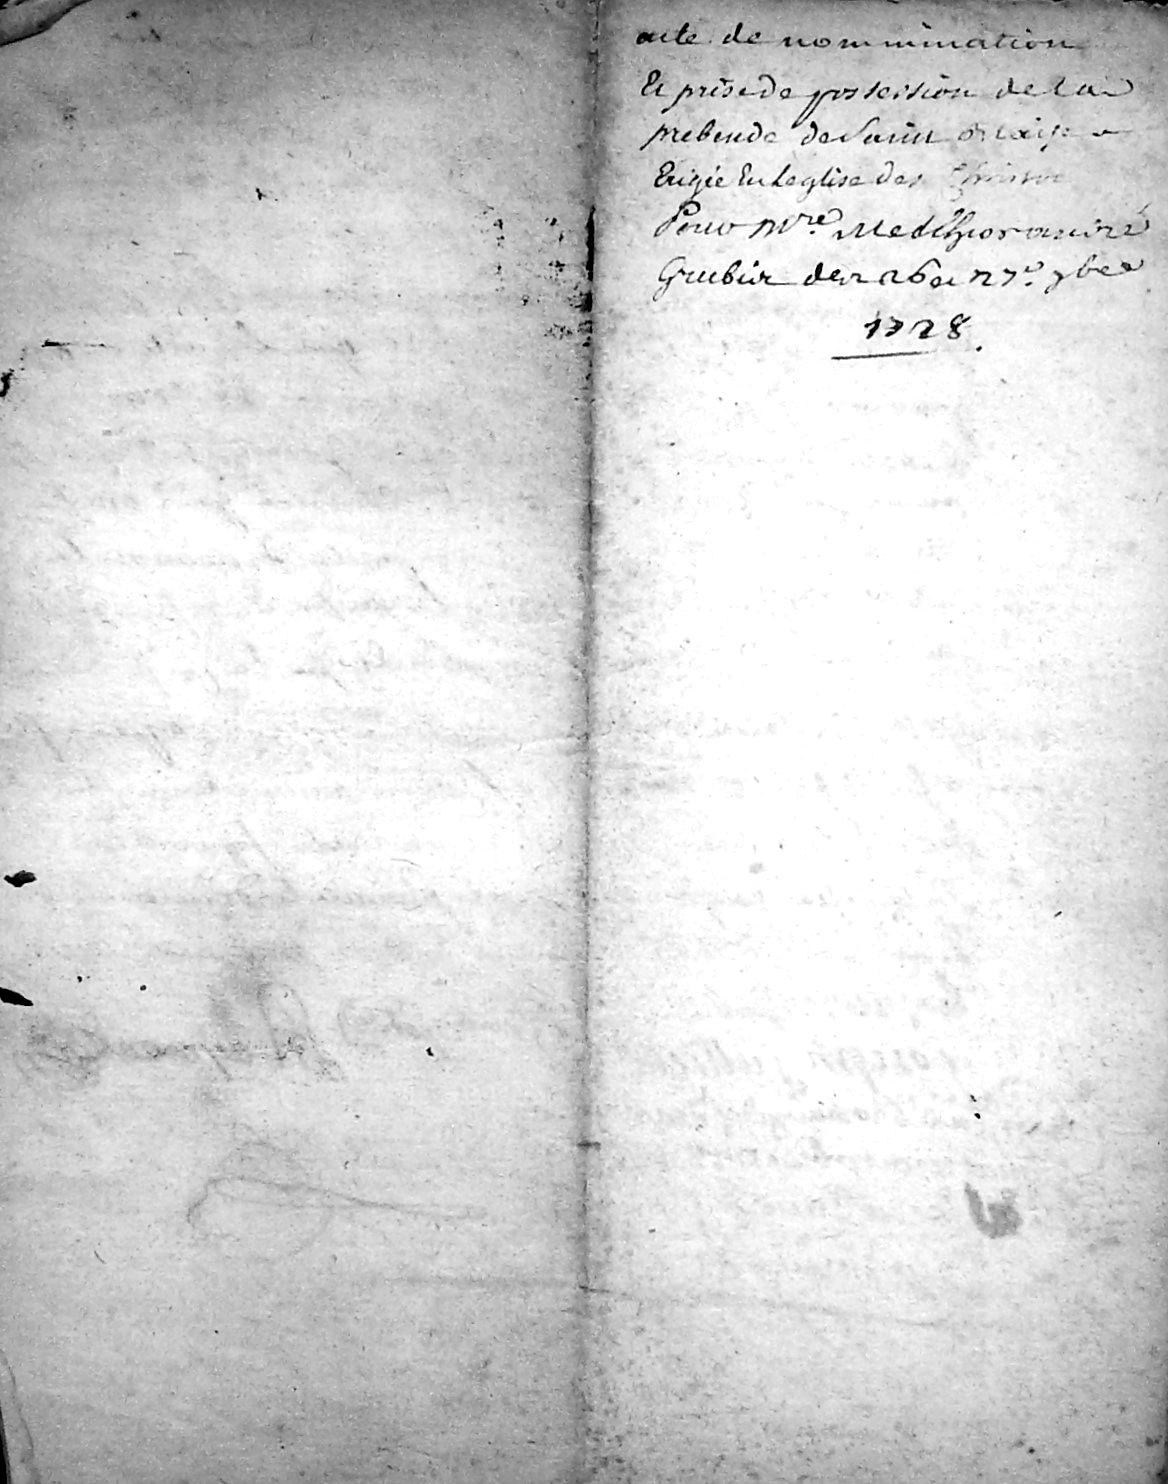 acte de nommination
Et prise de possession de la
prebende de Saint
Erigée En leglise de
Pour Mre Melchior andré
des 26 et 27e 9bre
1728.